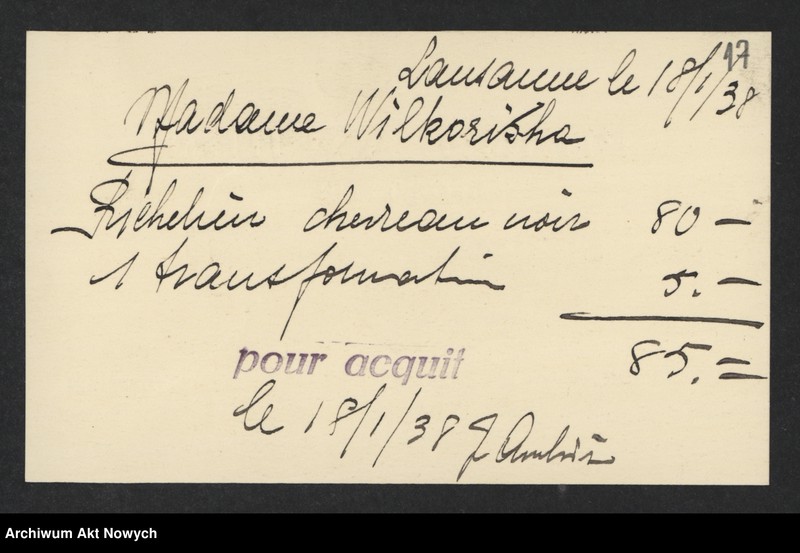 17
Lausanne le 18/1/38
Madame Wilkoriska
Richelieu chevreau noir 80 —
1 transformation 5. —
85. =
pour acquit
le 18/1/38 J
Archiwum Akt Nowych